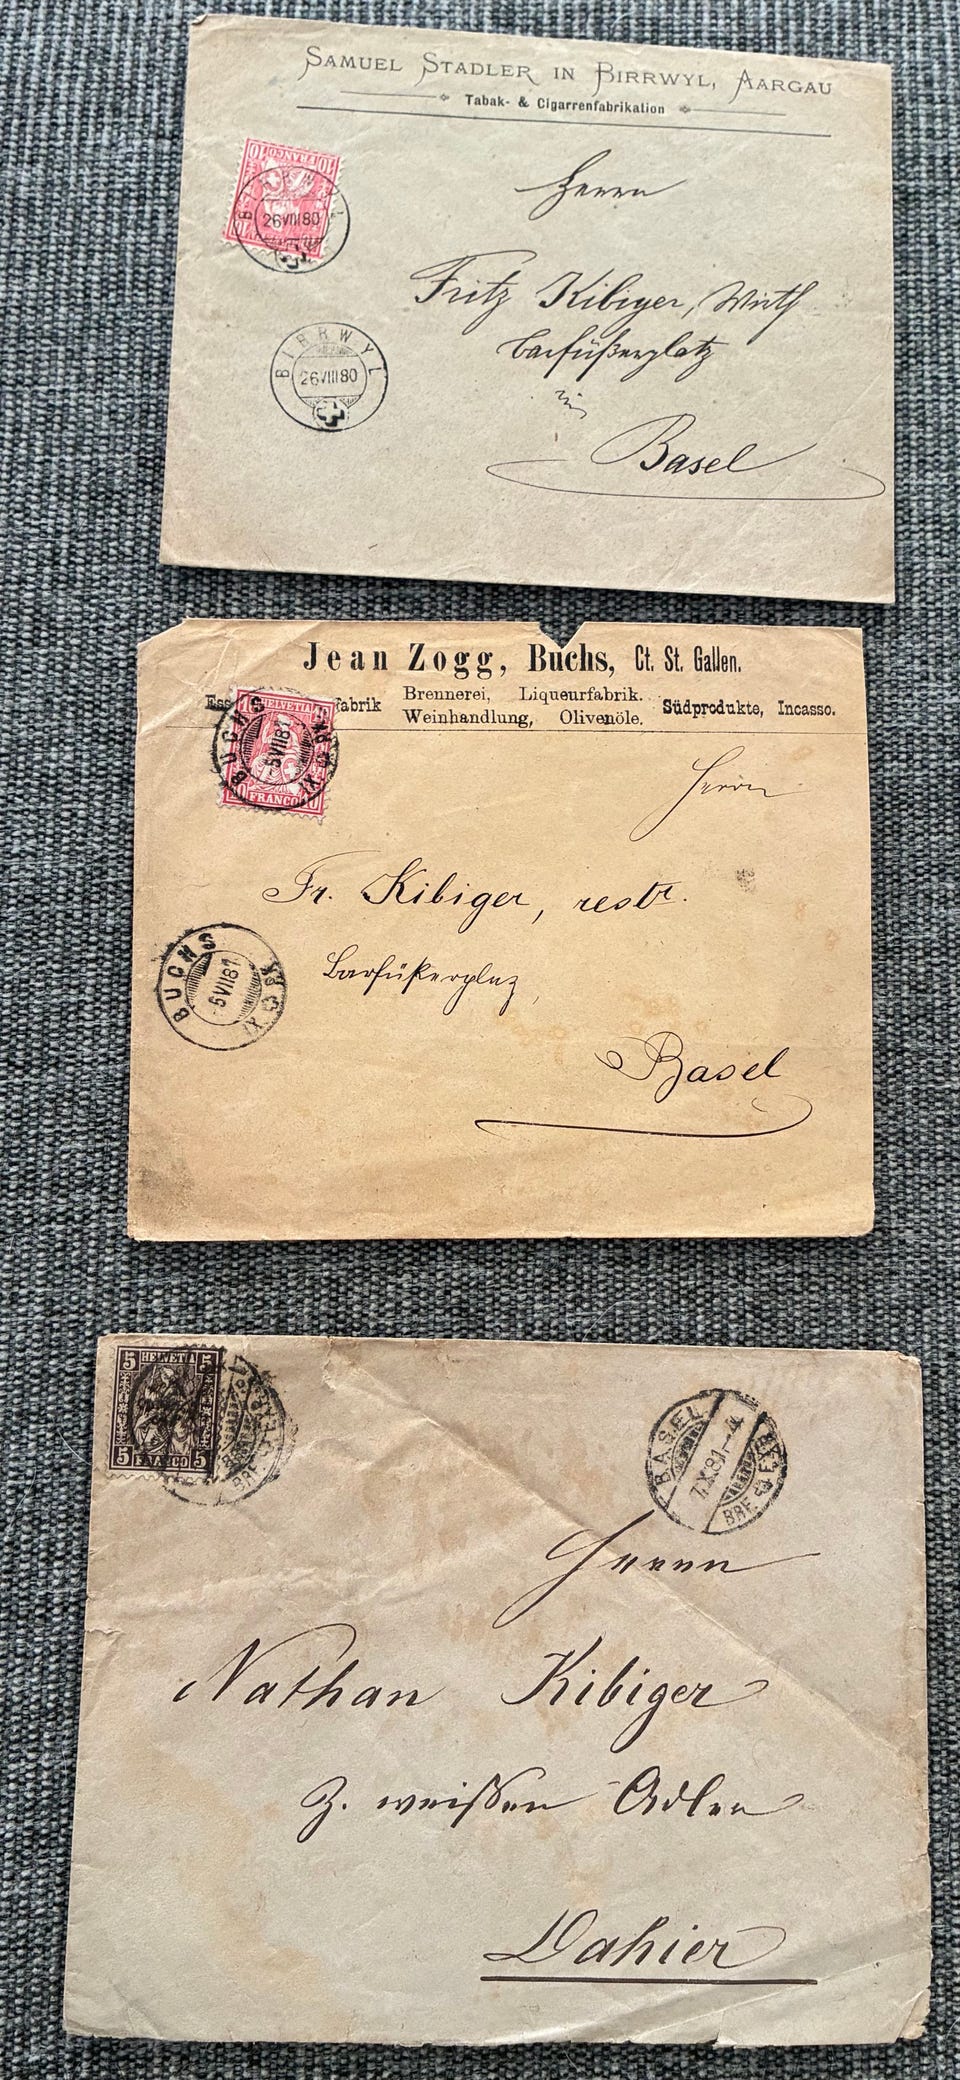 SAMUEL STADLER IN BIRRWYL, AARGAU
Tabak- & Cigarrenfabrikation
10 FRANCO 10
BIRRWYL
26 VIII 80
Herrn
Fritz Kibiger, Wirth
Barfüßerplatz
in
Basel
BIRRWYL
26 VIII 80
Jean Zogg, Buchs, Ct. St. Gallen.
Ess fabrik Brennerei, Liqueurfabrik. Südprodukte, Incasso.
Weinhandlung, Olivenöle.
HELVETIA
BUCHS
5 VII 81
10 FRANCO 10
Herrn
Fr. Kibiger, restr.
Barfüßerplaz,
Basel
BUCHS
6 VII 81
XI
5 HELVETIA 5
5 FRANCO 5
BRF.
BASEL
7.X.81.–4
BRF. EXP.
Herrn
Nathan Kibiger
z. weißen Adler
Dahier